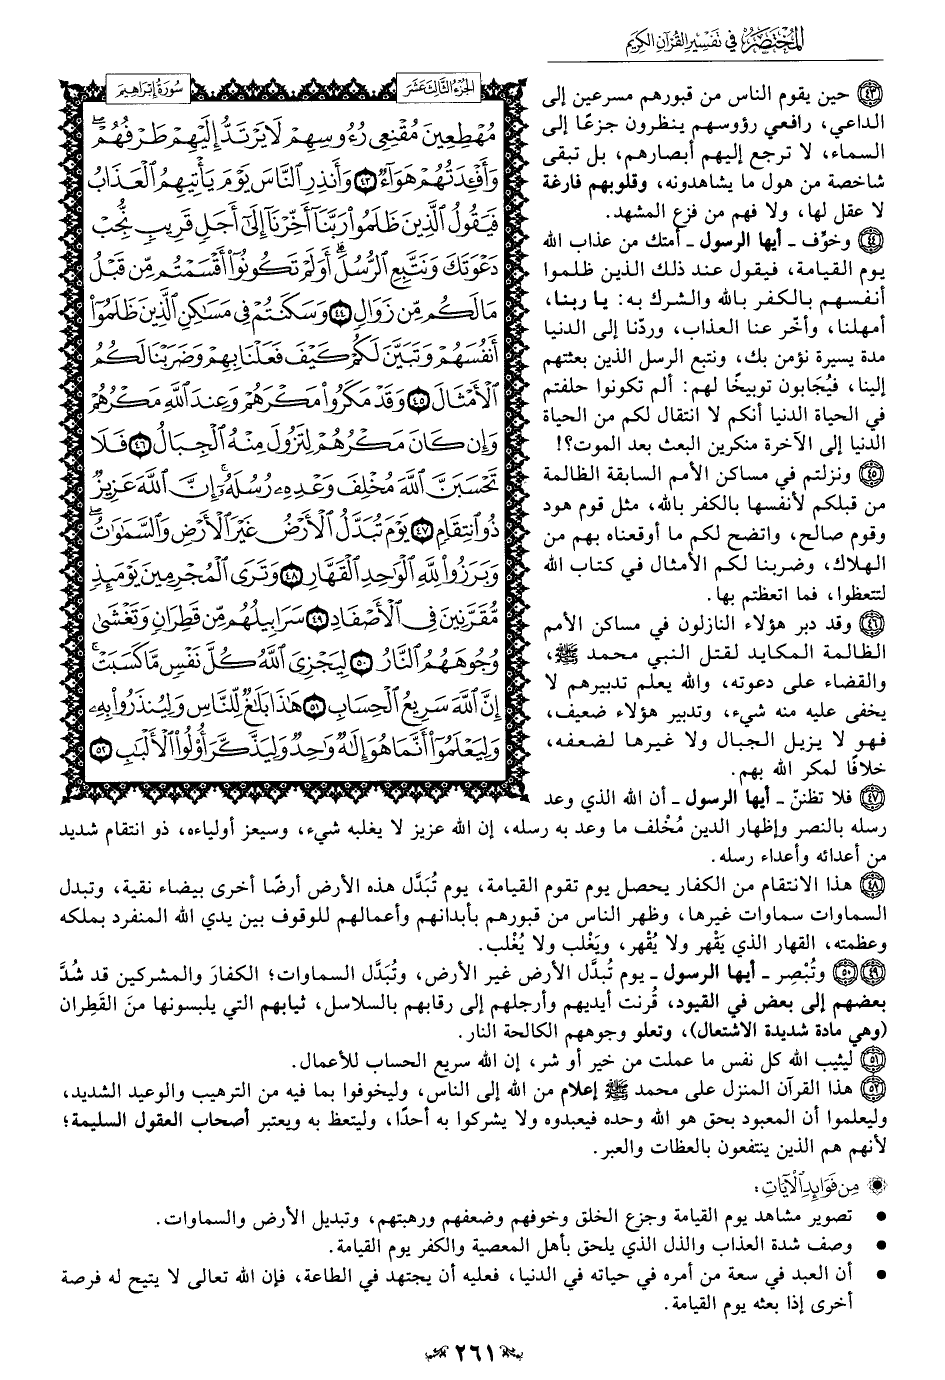 المختصر في تفسير القرآن الكريم
﴿٤٣﴾ حين يقوم الناس من قبورهم مسرعين إلى
الداعي، رافعي رؤوسهم ينظرون جزعًا إلى
السماء، لا ترجع إليهم أبصارهم، بل تبقى
شاخصة من هول ما يشاهدونه، وقلوبهم فارغة
لا عقل لها، ولا فهم من فزع المشهد.
﴿٤٤﴾ وخوِّف - أيها الرسول - أمتك من عذاب الله
يوم القيامة، فيقول عند ذلك الذين ظلموا
أنفسهم بالكفر بالله والشرك به: يا ربنا،
أمهلنا، وأخّر عنا العذاب، وردّنا إلى الدنيا
مدة يسيرة نؤمن بك، ونتبع الرسل الذين بعثتهم
إلينا، فيُجابون توبيخًا لهم: ألم تكونوا حلفتم
في الحياة الدنيا أنكم لا انتقال لكم من الحياة
الدنيا إلى الآخرة منكرين البعث بعد الموت؟!
﴿٤٥﴾ ونزلتم في مساكن الأمم السابقة الظالمة
من قبلكم لأنفسها بالكفر بالله، مثل قوم هود
وقوم صالح، واتضح لكم ما أوقعناه بهم من
الهلاك، وضربنا لكم الأمثال في كتاب الله
لتتعظوا، فما اتعظتم بها.
﴿٤٦﴾ وقد دبر هؤلاء النازلون في مساكن الأمم
الظالمة المكايد لقتل النبي محمد ﷺ،
والقضاء على دعوته، والله يعلم تدبيرهم لا
يخفى عليه منه شيء، وتدبير هؤلاء ضعيف،
فهو لا يزيل الجبال ولا غيرها لضعفه،
خلافًا لمكر الله بهم.
﴿٤٧﴾ فلا تظننّ - أيها الرسول - أن الله الذي وعد
رسله بالنصر وإظهار الدين مُخْلف ما وعد به رسله، إن الله عزيز لا يغلبه شيء، وسيعز أولياءه، ذو انتقام شديد
من أعدائه وأعداء رسله.
﴿٤٨﴾ هذا الانتقام من الكفار يحصل يوم تقوم القيامة، يوم تُبَدَّل هذه الأرض أرضًا أخرى بيضاء نقية، وتبدل
السماوات سماوات غيرها، وظهر الناس من قبورهم بأبدانهم وأعمالهم للوقوف بين يدي الله المنفرد بملكه
وعظمته، القهار الذي يَقْهر ولا يُقْهر، ويَغْلب ولا يُغْلب.
﴿٤٩﴾ ﴿٥٠﴾ وتُبْصِر - أيها الرسول - يوم تُبدَّل الأرض غير الأرض، وتُبَدَّل السماوات؛ الكفارَ والمشركين قد شُدَّ
بعضهم إلى بعض في القيود، قُرنت أيديهم وأرجلهم إلى رقابهم بالسلاسل، ثيابهم التي يلبسونها منَ القَطِران
(وهي مادة شديدة الاشتعال)، وتعلو وجوههم الكالحة النار.
﴿٥١﴾ ليثيب الله كل نفس ما عملت من خير أو شر، إن الله سريع الحساب للأعمال.
﴿٥٢﴾ هذا القرآن المنزل على محمد ﷺ إعلام من الله إلى الناس، وليخوفوا بما فيه من الترهيب والوعيد الشديد،
وليعلموا أن المعبود بحق هو الله وحده فيعبدوه ولا يشركوا به أحدًا، وليتعظ به ويعتبر أصحاب العقول السليمة؛
لأنهم هم الذين ينتفعون بالعظات والعبر.
من فوائد الآيات:
• تصوير مشاهد يوم القيامة وجزع الخلق وخوفهم وضعفهم ورهبتهم، وتبديل الأرض والسماوات.
• وصف شدة العذاب والذل الذي يلحق بأهل المعصية والكفر يوم القيامة.
• أن العبد في سعة من أمره في حياته في الدنيا، فعليه أن يجتهد في الطاعة، فإن الله تعالى لا يتيح له فرصة
أخرى إذا بعثه يوم القيامة.
الجزء الثالث عشر
سورة إبراهيم
مُهْطِعِينَ مُقْنِعِي رُءُوسِهِمْ لَا يَرْتَدُّ إِلَيْهِمْ طَرْفُهُمْ ۖ
وَأَفْـِٔدَتُهُمْ هَوَآءٌ ﴿٤٣﴾ وَأَنذِرِ ٱلنَّاسَ يَوْمَ يَأْتِيهِمُ ٱلْعَذَابُ
فَيَقُولُ ٱلَّذِينَ ظَلَمُوا۟ رَبَّنَآ أَخِّرْنَآ إِلَىٰٓ أَجَلٍ قَرِيبٍ نُّجِبْ
دَعْوَتَكَ وَنَتَّبِعِ ٱلرُّسُلَ ۗ أَوَلَمْ تَكُونُوٓا۟ أَقْسَمْتُم مِّن قَبْلُ
مَا لَكُم مِّن زَوَالٍ ﴿٤٤﴾ وَسَكَنتُمْ فِي مَسَٰكِنِ ٱلَّذِينَ ظَلَمُوٓا۟
أَنفُسَهُمْ وَتَبَيَّنَ لَكُمْ كَيْفَ فَعَلْنَا بِهِمْ وَضَرَبْنَا لَكُمُ
ٱلْأَمْثَالَ ﴿٤٥﴾ وَقَدْ مَكَرُوا۟ مَكْرَهُمْ وَعِندَ ٱللَّهِ مَكْرُهُمْ
وَإِن كَانَ مَكْرُهُمْ لِتَزُولَ مِنْهُ ٱلْجِبَالُ ﴿٤٦﴾ فَلَا
تَحْسَبَنَّ ٱللَّهَ مُخْلِفَ وَعْدِهِۦ رُسُلَهُۥٓ ۗ إِنَّ ٱللَّهَ عَزِيزٌ
ذُو ٱنتِقَامٍ ﴿٤٧﴾ يَوْمَ تُبَدَّلُ ٱلْأَرْضُ غَيْرَ ٱلْأَرْضِ وَٱلسَّمَٰوَٰتُ ۖ
وَبَرَزُوا۟ لِلَّهِ ٱلْوَٰحِدِ ٱلْقَهَّارِ ﴿٤٨﴾ وَتَرَى ٱلْمُجْرِمِينَ يَوْمَئِذٍ
مُّقَرَّنِينَ فِي ٱلْأَصْفَادِ ﴿٤٩﴾ سَرَابِيلُهُم مِّن قَطِرَانٍ وَتَغْشَىٰ
وُجُوهَهُمُ ٱلنَّارُ ﴿٥٠﴾ لِيَجْزِيَ ٱللَّهُ كُلَّ نَفْسٍ مَّا كَسَبَتْ ۚ
إِنَّ ٱللَّهَ سَرِيعُ ٱلْحِسَابِ ﴿٥١﴾ هَٰذَا بَلَٰغٌ لِّلنَّاسِ وَلِيُنذَرُوا۟ بِهِۦ
وَلِيَعْلَمُوٓا۟ أَنَّمَا هُوَ إِلَٰهٌ وَٰحِدٌ وَلِيَذَّكَّرَ أُو۟لُوا۟ ٱلْأَلْبَٰبِ ﴿٥٢﴾
٢٦١